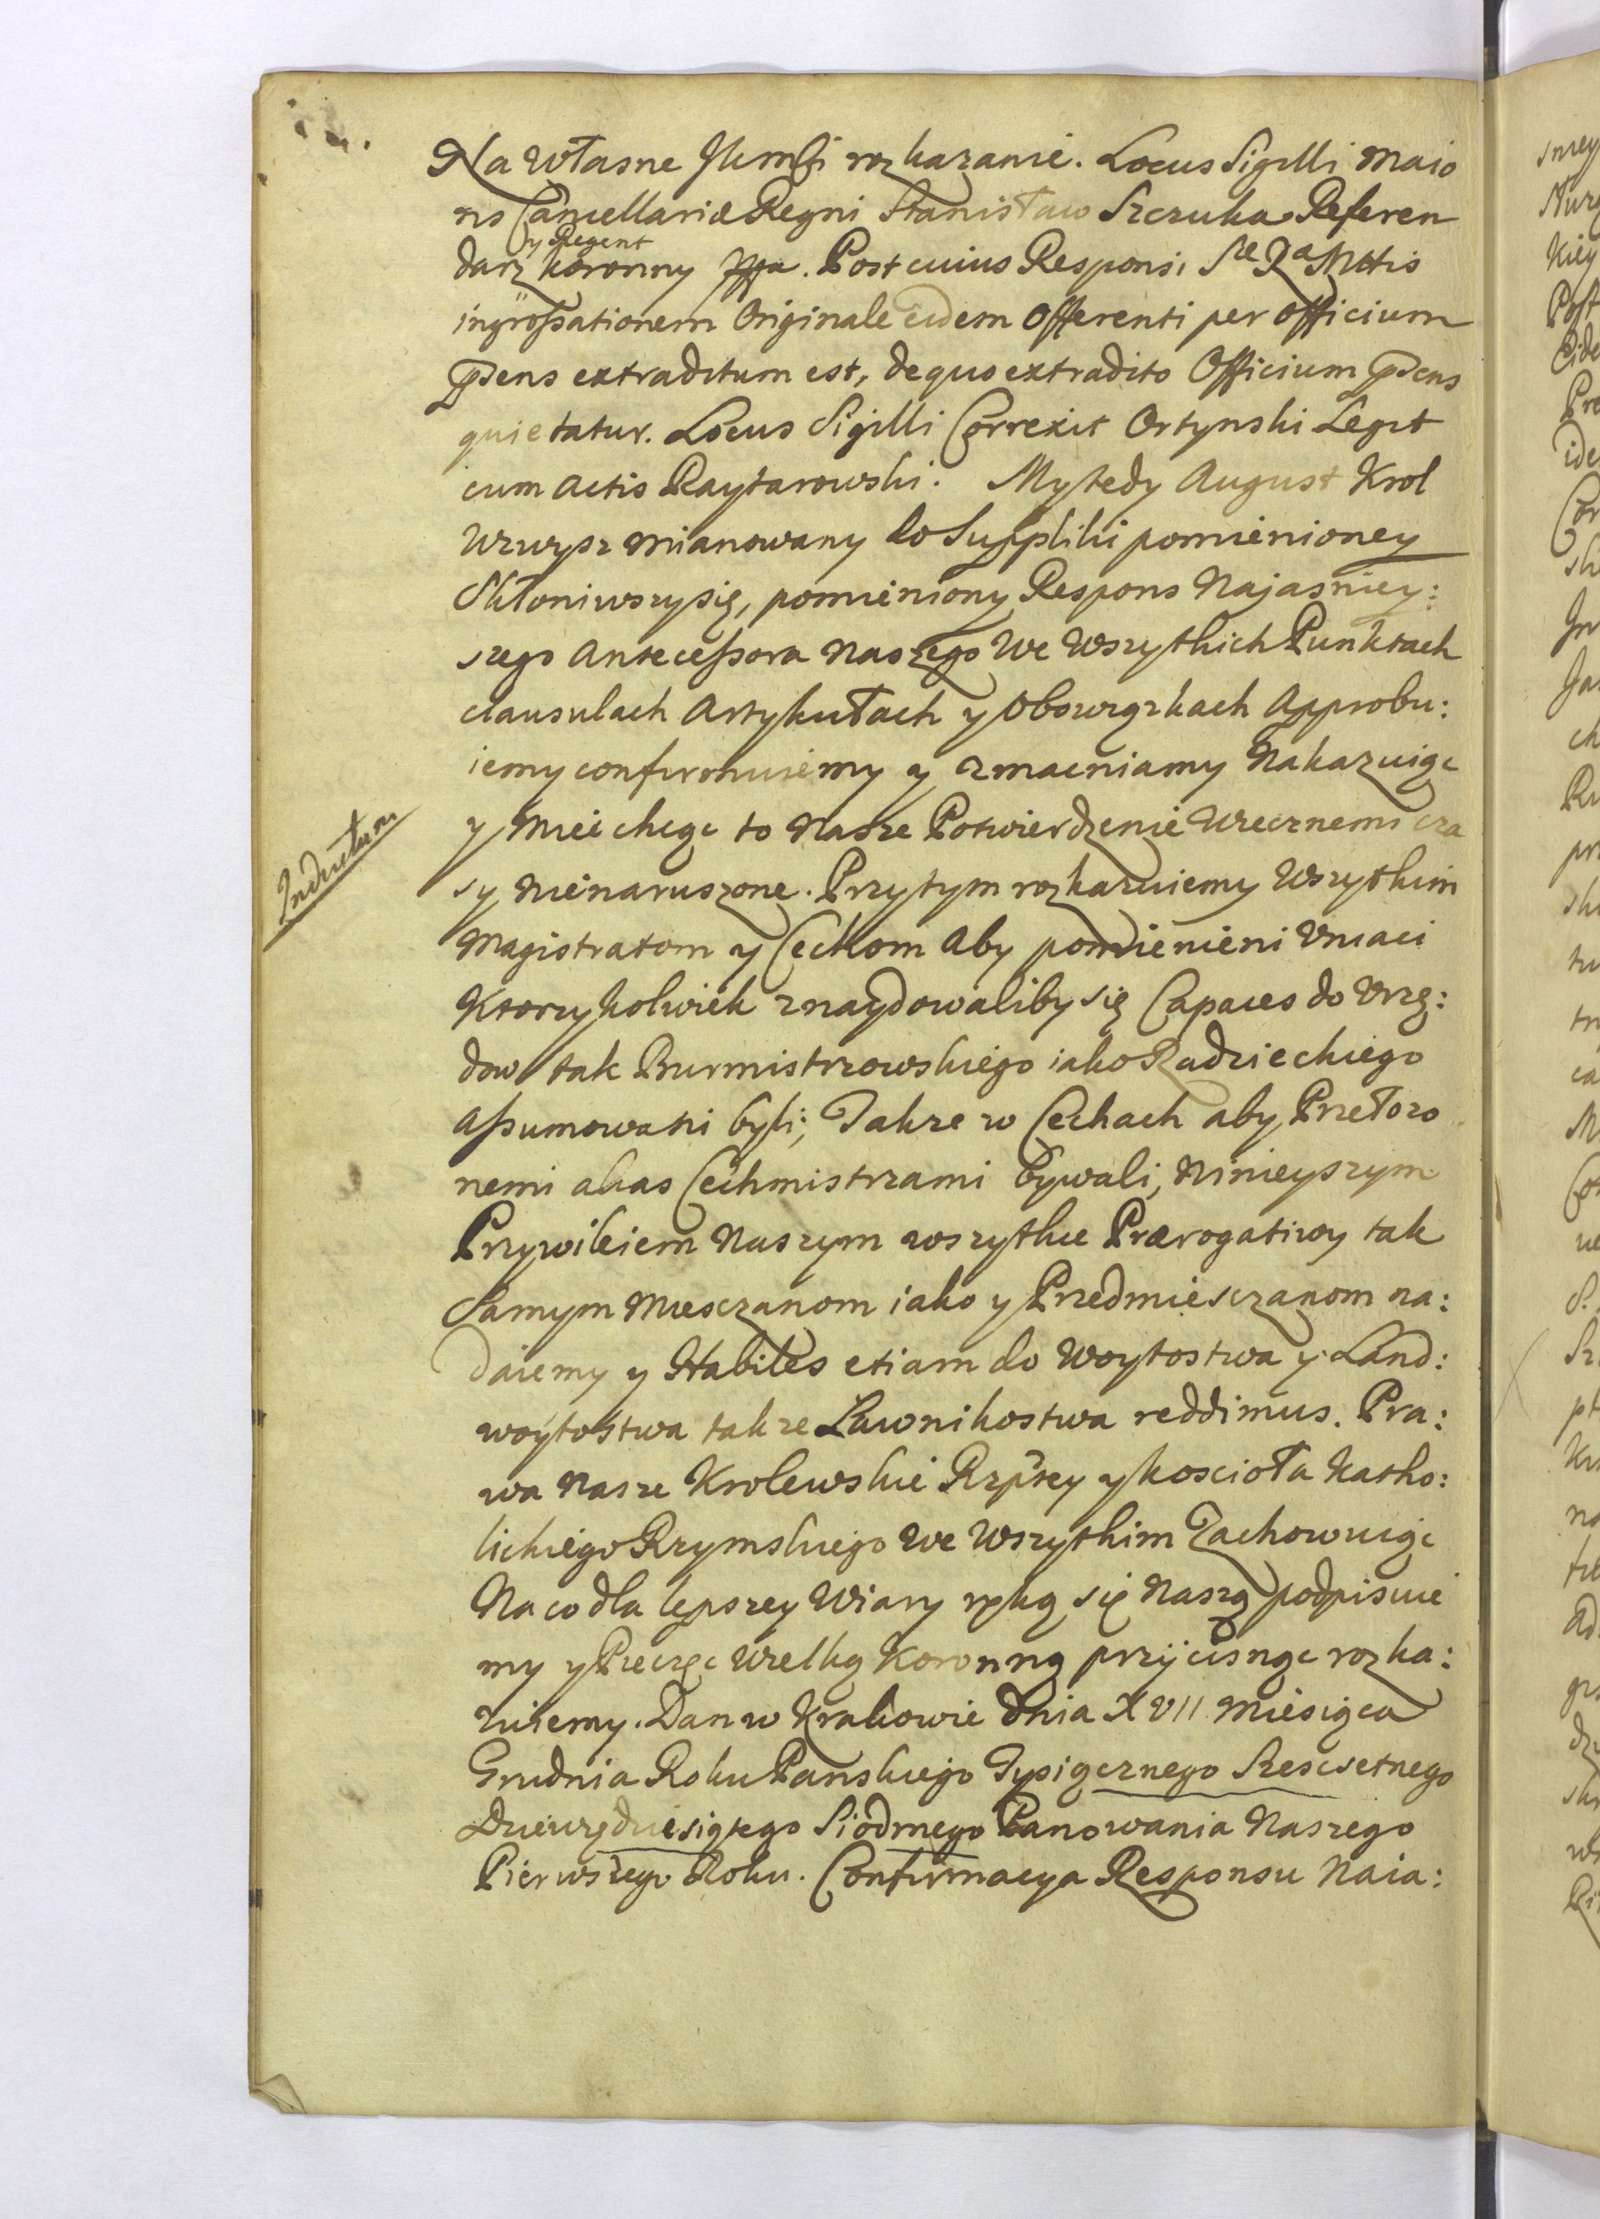 Na własne JKmści rozkazanie. Locus Sigilli Maio
ris Cancellariæ Regni Stanisław Szczuka Referen
y Regent
darz koronny mppa. Post cuius Responsi Sæ Ræ Mttis
ingrossationem Originale eidem Offerenti per officium
pñsens extraditum est, de quo extradito Officium pñsens
quietatur. Locus Sigilli Correxit Ortynski Legit
cum actis Raytarowski. My tedy August Krol
wzwysz mianowany do Suppliki pomienioney
Skłoniwszy się, pomieniony Respons Najasniey:
szego Antecessora Naszego We Wszytkich Punktach
clausulach Artykułach y Obowiązkach Approbu:
iemy confirmuiemy y zmacniamy Nakazuiąc
y Mieć chcąc to Nasze Potwierdzenie wiecznemi cza
sy nienaruszone. Przytym rozkazuiemy Wszytkim
Magistratom y Cechom aby pomienieni Vniaci
Ktorzykolwiek znaydowaliby się Capaces do Vrzę:
dow tak Burmistrzowskiego iako Radzieckiego
assumowani byli; Takze w Cechach aby Przełozo
nemi alias Cechmistrzami bywali, Ninieyszym
Przywileiem Naszym wszytkie Prærogatiwy tak
Samym Miesczanom iako y Przedmiesczanom na:
daiemy y Habiles etiam do Woytostwa y Land:
woytostwa takze Ławnikostwa reddimus. Pra:
wa Nasze Krolewskie Rzptey y kosciołа Katho:
lickiego Rzymskiego we Wszytkim Zachowuiąc
Na co dla lepszey Wiary ręką się Naszą podpisuie
my y Pieczęć Wielką Koronną przycisnąc rozka:
zuiemy. Dan w Krakowie Dnia XVII Miesiąca
Grudnia Roku Panskiego Tysiącznego Szescsetnego
Dziewięćdziesiątego Siodmego Panowania Naszego
Pierwszego Roku. Confirmacya Responsu Naia:
Indultum